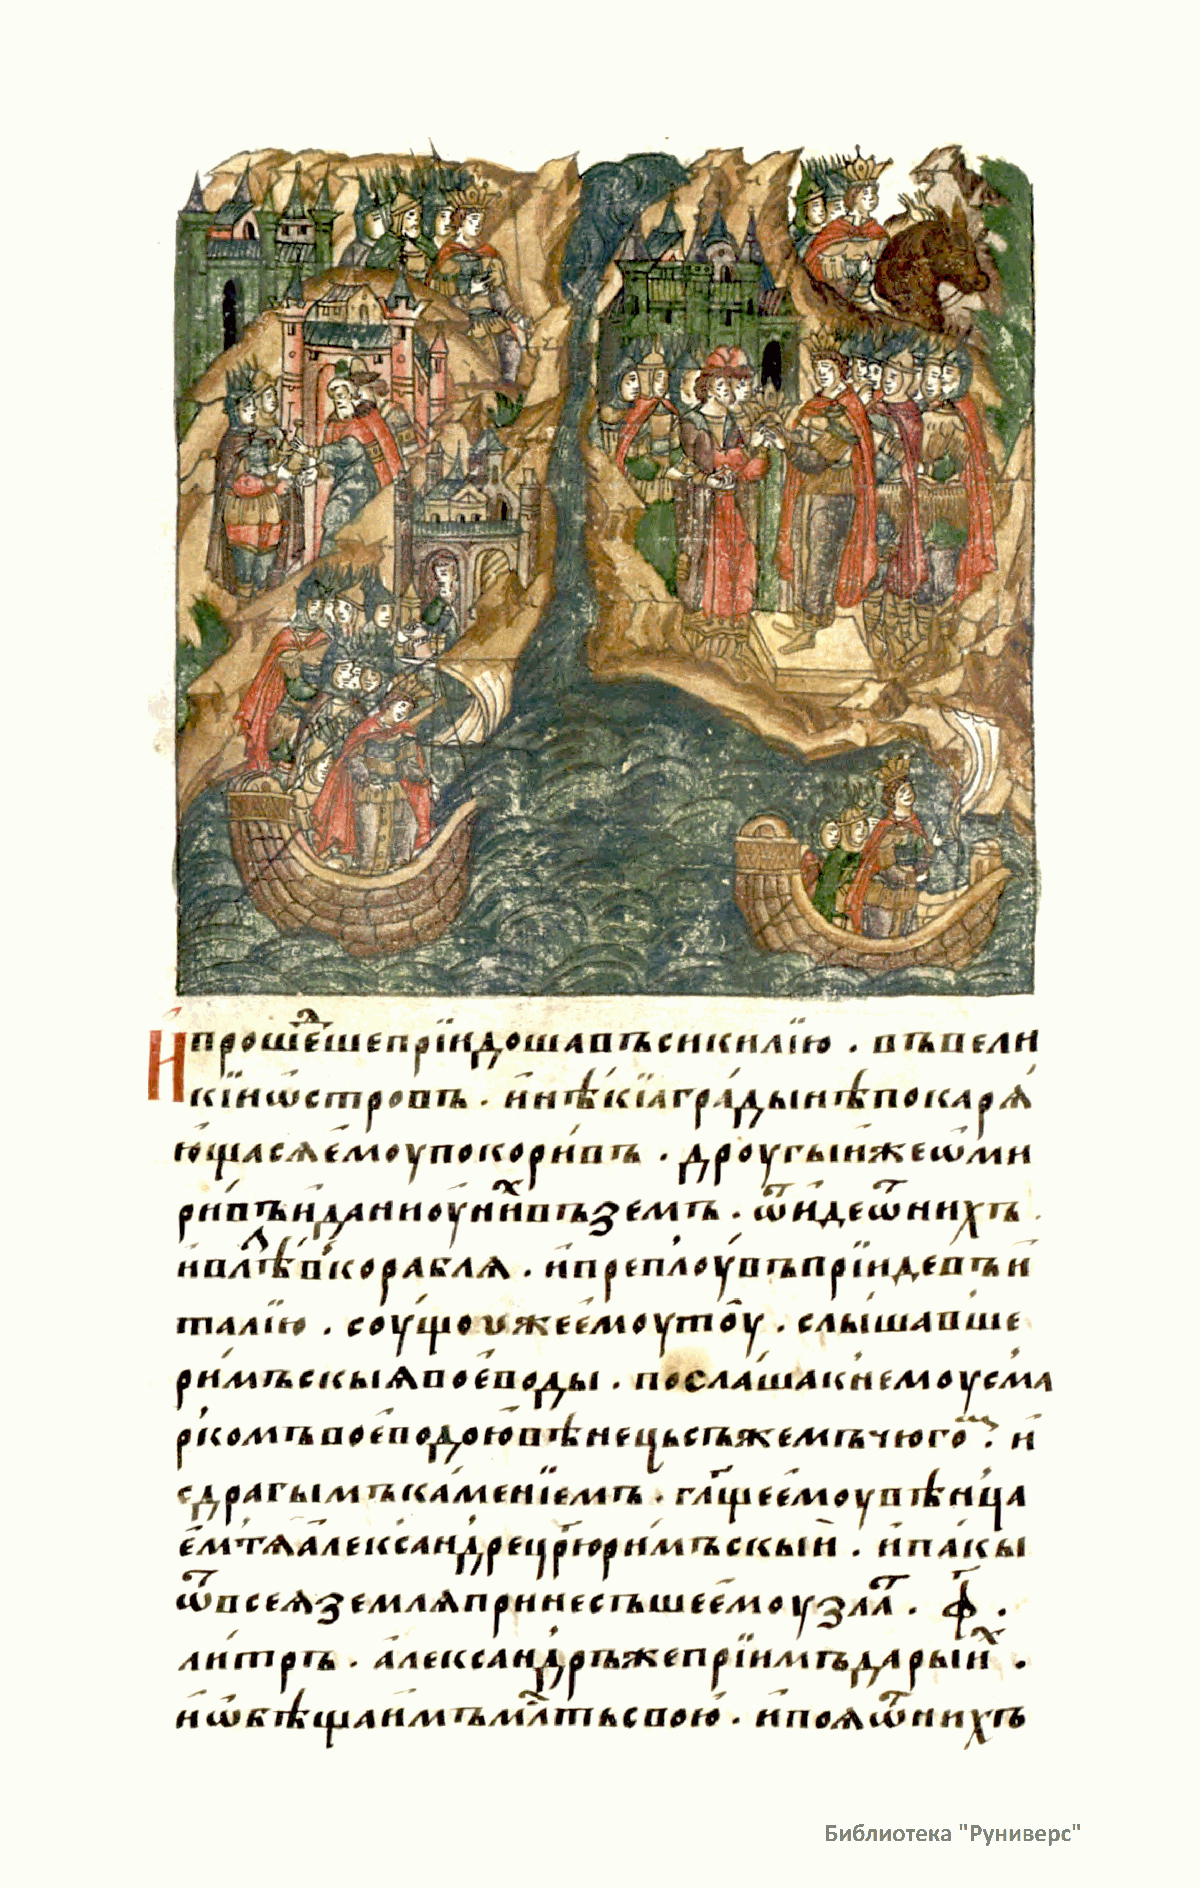 И҆проше́дшепрїидошавъсикилїю . въвели
кїиѡ҆стровъ . и҆нѣ́кїѧгра́дынѣпокарѧ́
ю҆щасѧе҆моупокори́въ . дроугыи҆жеѡ҆ми
ри́въи҆даниоуни́хвъземъ . ѿидеѿнихъ .
и҆влѣ́двкорабля . и҆преплоу́въпрїидевъи҆
талїю . соу́щоужее҆моутоу̀ . слы́шавше
ри́мъскыѧвое҆воды . посла́шакнемоусма
ркомъвое҆водою҆вѣнецьсъжемъчюго́щ . и҆
сдрагымъка́менїемъ . гл҃ще҆е҆моувѣнца
е҆мтѧа҆леѯа́ндрецр҃юри́мъскыи҆ . и҆па́кы
ѿвсеѧземлѧпринесъшее҆моузлат . ф҃ .
ли́тръ . а҆леѯа́ндръжепрїимъдары́их .
и҆ѡ҆бѣщаи҆мъмл҃тьсвою . и҆поѧѿнихъ
Библиотека "Руниверс"